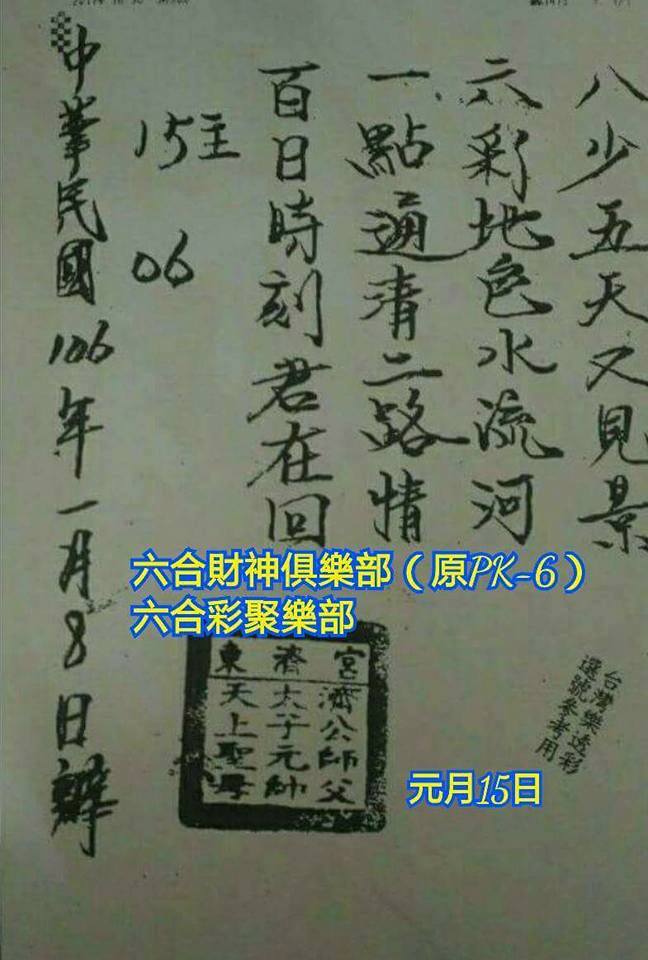 八少五天又見景
六彩地色水流河
一點通清二路情
百日時刻君在回
15主
06
中華民國106年一月8日
六合財神俱樂部（原PK-6）
六合彩聚樂部
東濟宮
濟公師父
太子元帥
天上聖母
台灣樂透彩
選號參考用
元月15日